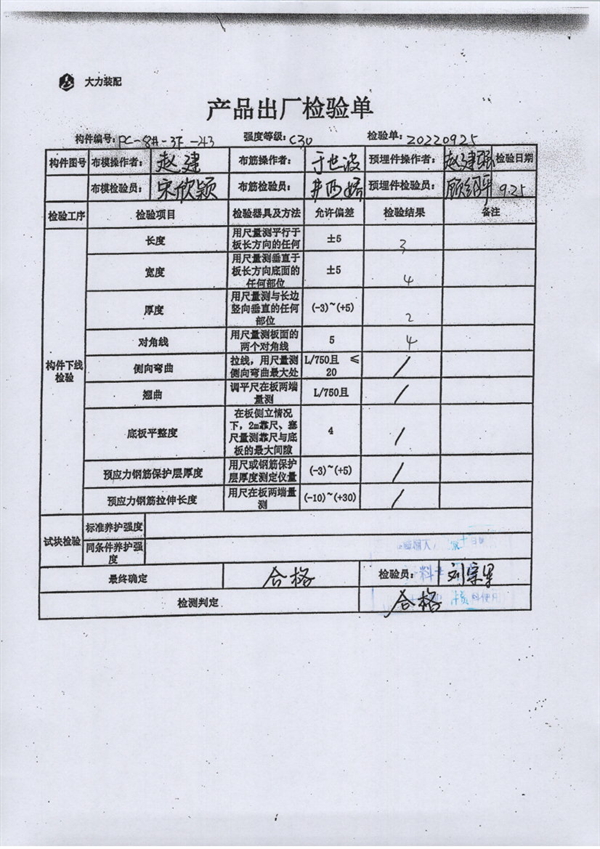 大力装配
产品出厂检验单
构件编号: PC-8#-3F-243 强度等级: C30 检验单: 20220925
构件图号 布模操作者: 赵建 布筋操作者: 于世波 预埋件操作者: 赵建强 检验日期
布模检验员: 宋欣颖 布筋检验员: 预埋件检验员: 9.25
检验工序 检验项目 检验器具及方法 允许偏差 检验结果 备注
构件下线检验
长度 用尺量测平行于板长方向的任何 ±5 3
宽度 用尺量测垂直于板长方向底面的任何部位 ±5 4
厚度 用尺量测与长边竖向垂直的任何部位 (-3)~(+5) 2
对角线 用尺量测板面的两个对角线 5 4
侧向弯曲 拉线，用尺量测侧向弯曲最大处 L/750且 ≤20 /
翘曲 调平尺在板两端量测 L/750且 /
底板平整度 在板侧立情况下，2m靠尺、塞尺量测靠尺与底板的最大间隙 4 /
预应力钢筋保护层厚度 用尺或钢筋保护层厚度测定仪量 (-3)~(+5) /
预应力钢筋拉伸长度 用尺在板两端量测 (-10)~(+30) /
试块检验 标准养护强度
同条件养护强度
最终确定 合格 检验员:
检测判定 合格